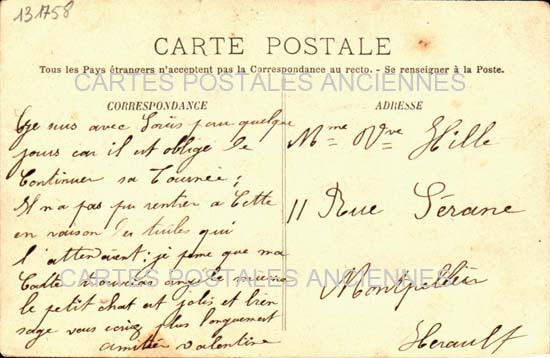 131758
CARTE POSTALE
Tous les Pays étrangers n'acceptent pas la Correspondance au recto. - Se renseigner à la Poste.
CARTES POSTALES ANCIENNES
CORRESPONDANCE
ADRESSE
Je suis avec Loüis pour quelque
jours car il est obligé de
Continuer sa Tournée;
Il n'a pas pu rentier a Cette
en raison des tuiles qui
l'attendaient: je pense que ma
Carte
le petit chat est jolis et bien
sage vous plus longuement
amitiés valentine
Mme Vve Hille
11 Rue Sérane
Montpellier
Herault
CARTES POSTALES ANCIENNES